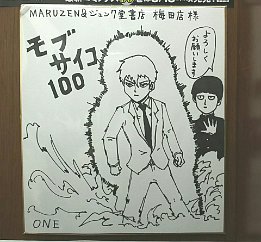 MARUZEN&ジュンク堂書店 梅田店 様
モブ
サイコ
100
よろしく
お願いします
ONE